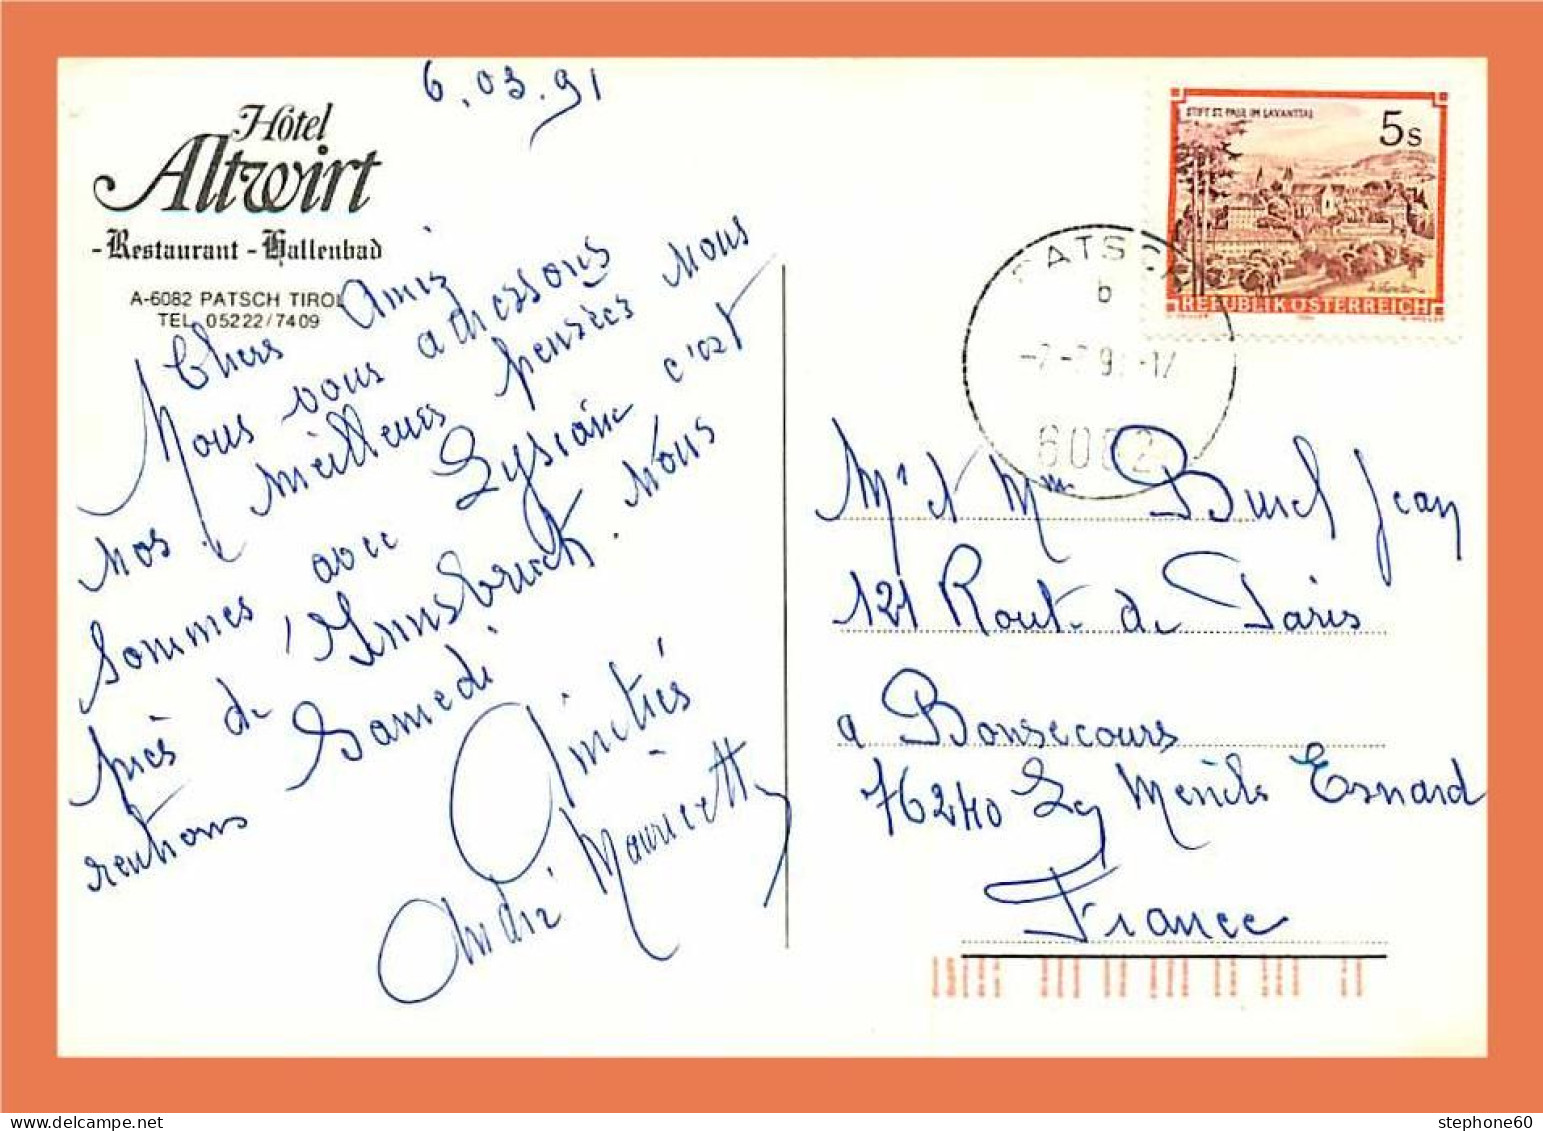 6.03.91
Hôtel
Altwirt
-Restaurant-Hallenbad
A-6082 PATSCH TIROL
TEL. 05222/7409
Chers Amis
Nous vous adressons
nos meilleurs pensées Nous
sommes avec Lysiane c'est
près de Innsbruck. Nous
rentrons Samedi
Amitiés
André Mauricette
STIFT ST. PAUL IM LAVANTTAL
5 S
REPUBLIK ÖSTERREICH
PATSCH
b
6082
Mr et Mme Burel Jean
121 Route de Paris
a Bonsecours
76240 Le Mesnils Esnard
France
stephone60